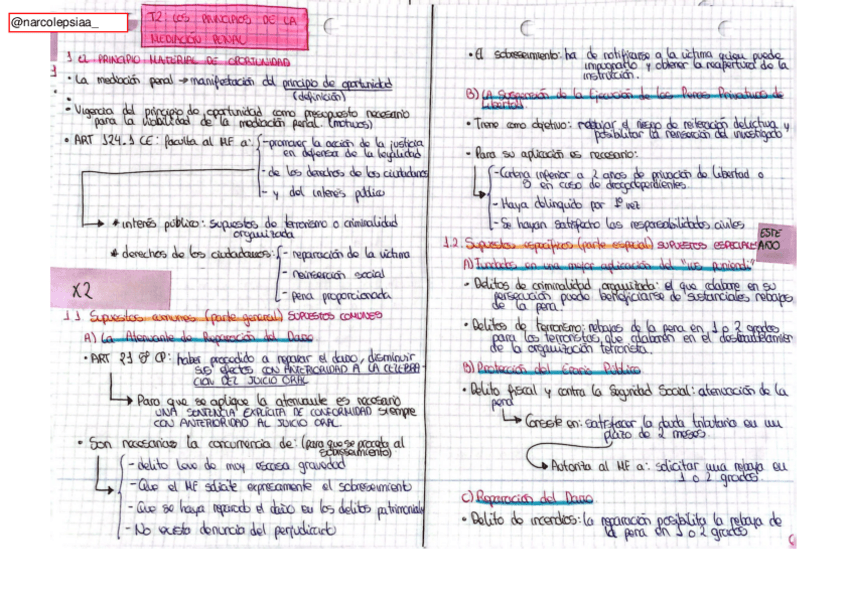 @narcolepsiaa_
T.2: LOS PRINCIPIOS DE LA
MEDIACIÓN PENAL
1 EL PRINCIPIO MATERIAL DE OPORTUNIDAD
• La mediación penal → manifestación del principio de oportunidad
(definición)
• Vigencia del principio de oportunidad como presupuesto necesario
para la viabilidad de la mediación penal. (motivos)
• ART 124.1 CE: faculta al MF a: - promover la acción de la justicia
en defensa de la legalidad
- de los derechos de los ciudadanos
- y del interés público
* interés público: supuestos de terrorismo o criminalidad
organizada
* derechos de los ciudadanos: - reparación de la víctima
- reinserción social
- pena proporcionada
X2
1.1 Supuestos comunes (parte general) SUPUESTOS COMUNES
A) La Atenuante de Reparación del Daño
• ART 21 5º CP: haber procedido a reparar el daño, disminuir
sus efectos CON ANTERIORIDAD A LA CELEBRA-
CIÓN DEL JUICIO ORAL
Para que se aplique la atenuante es necesario
UNA SENTENCIA EXPLÍCITA DE CONFORMIDAD siempre
CON ANTERIORIDAD AL JUICIO ORAL.
• Son necesarios la concurrencia de: (para que se proceda al
sobreseimiento)
- delito leve de muy escasa gravedad
- Que el MF solicite expresamente el sobreseimiento
- Que se haya reparado el daño en los delitos patrimoniales
- No exista denuncia del perjudicado
• El sobreseimiento: ha de notificarse a la víctima quien puede
impugnarlo y obtener la reapertura de la
instrucción.
B) LA Suspensión de la Ejecución de las Penas Privativas de
Libertad
• Tiene como objetivo: rebajar el riesgo de reiteración delictiva y
posibilitar la reinserción del investigado
• Para su aplicación es necesario:
- Condena inferior a 2 años de privación de libertad o
5 en caso de drogodependientes.
- Haya delinquido por 1ª vez
- Se hayan satisfecho las responsabilidades civiles
ESTE
AÑO
1.2. Supuestos específicos (parte especial) SUPUESTOS ESPECIALES
A) Fundados en una mejor aplicación del "ius puniendi"
• Delitos de criminalidad organizada: el que colabore en su
persecución puede beneficiarse de sustanciales rebajas
de la pena.
• Delitos de terrorismo: rebajas de la pena en 1 o 2 grados
para los terroristas que colaboren en el
de la organización terrorista.
B) Protección del Erario Público
• Delito fiscal y contra la Seguridad Social: atenuación de la
pena
Consiste en: satisfacer la deuda tributaria en un
plazo de 2 meses.
Autoriza al MF a: solicitar una rebaja en
1 o 2 grados.
C) Reparación del Daño
• Delito de incendios: la reparación posibilita la rebaja de
la pena en 1 o 2 grados